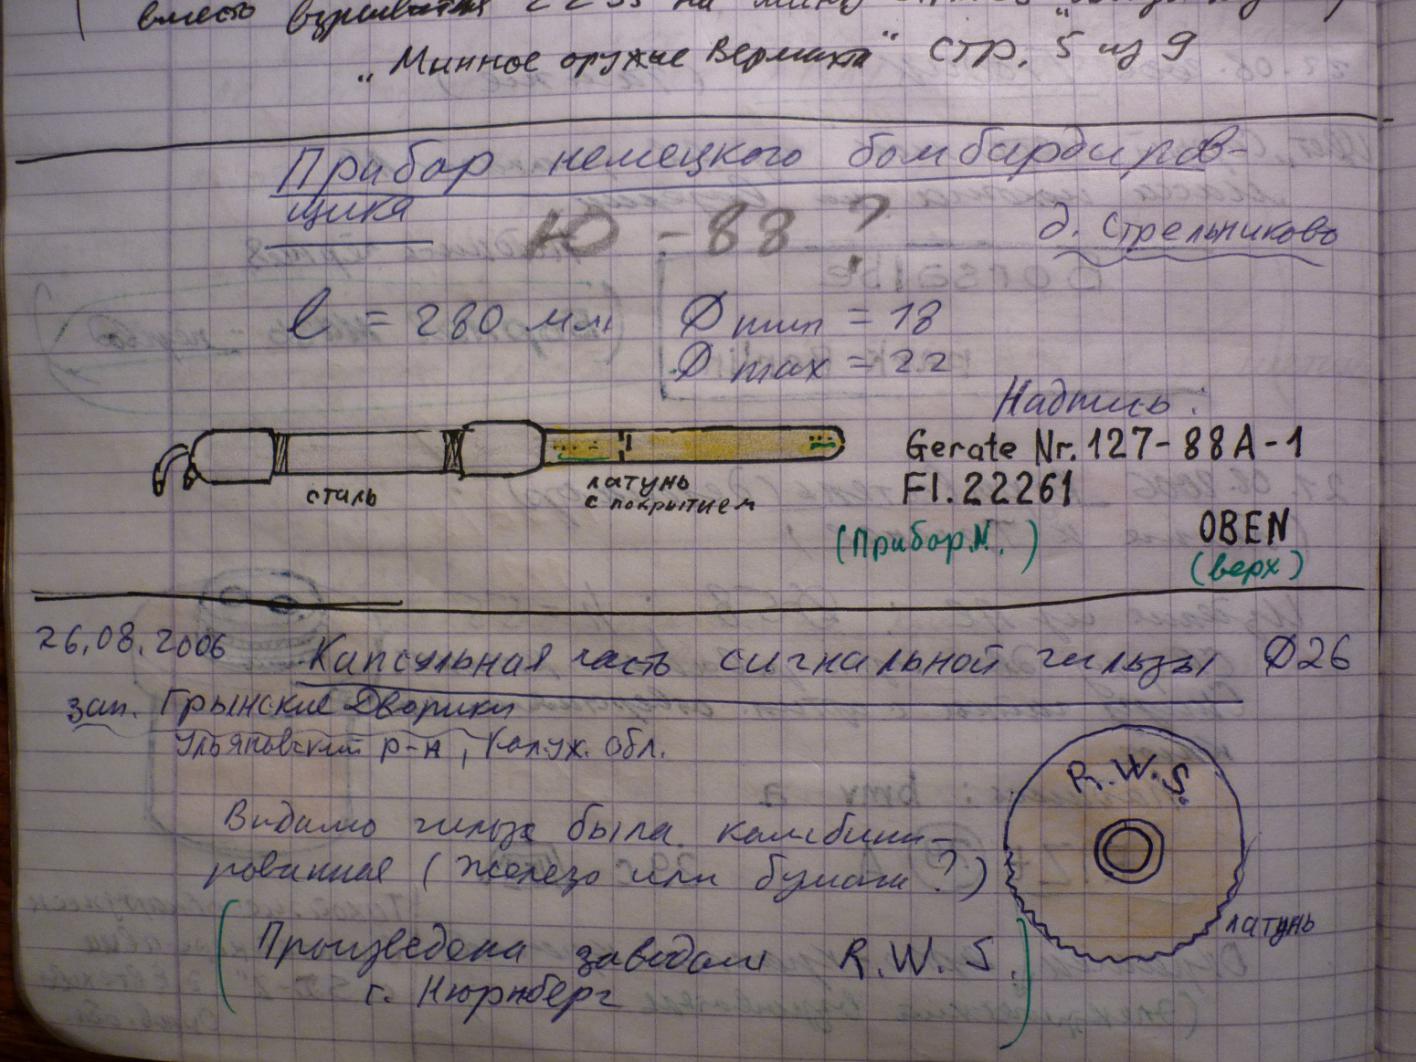 вместо взрывателя на мину
"Минное оружие Вермахта" стр. 5 из 9
Прибор немецкого бомбардиров-
щика
Ю - 88 ?
д. Стрельниково
l = 280 мм Ф min = 18
Ф max = 22
Надпись:
Gerate Nr. 127-88A-1
Fl. 22261
сталь
латунь
с покрытием
(Прибор N. )
OBEN
(верх)
26.08.2006 Капсульная часть сигнальной гильзы Ф26
зап. Грынские Дворики
Ульяновский р-н, Калуж. обл.
R.W.S.
Видимо гильза была комбини-
рованная (железо или бумага?)
латунь
(Произведена заводом R.W.S.
г. Нюрнберг)